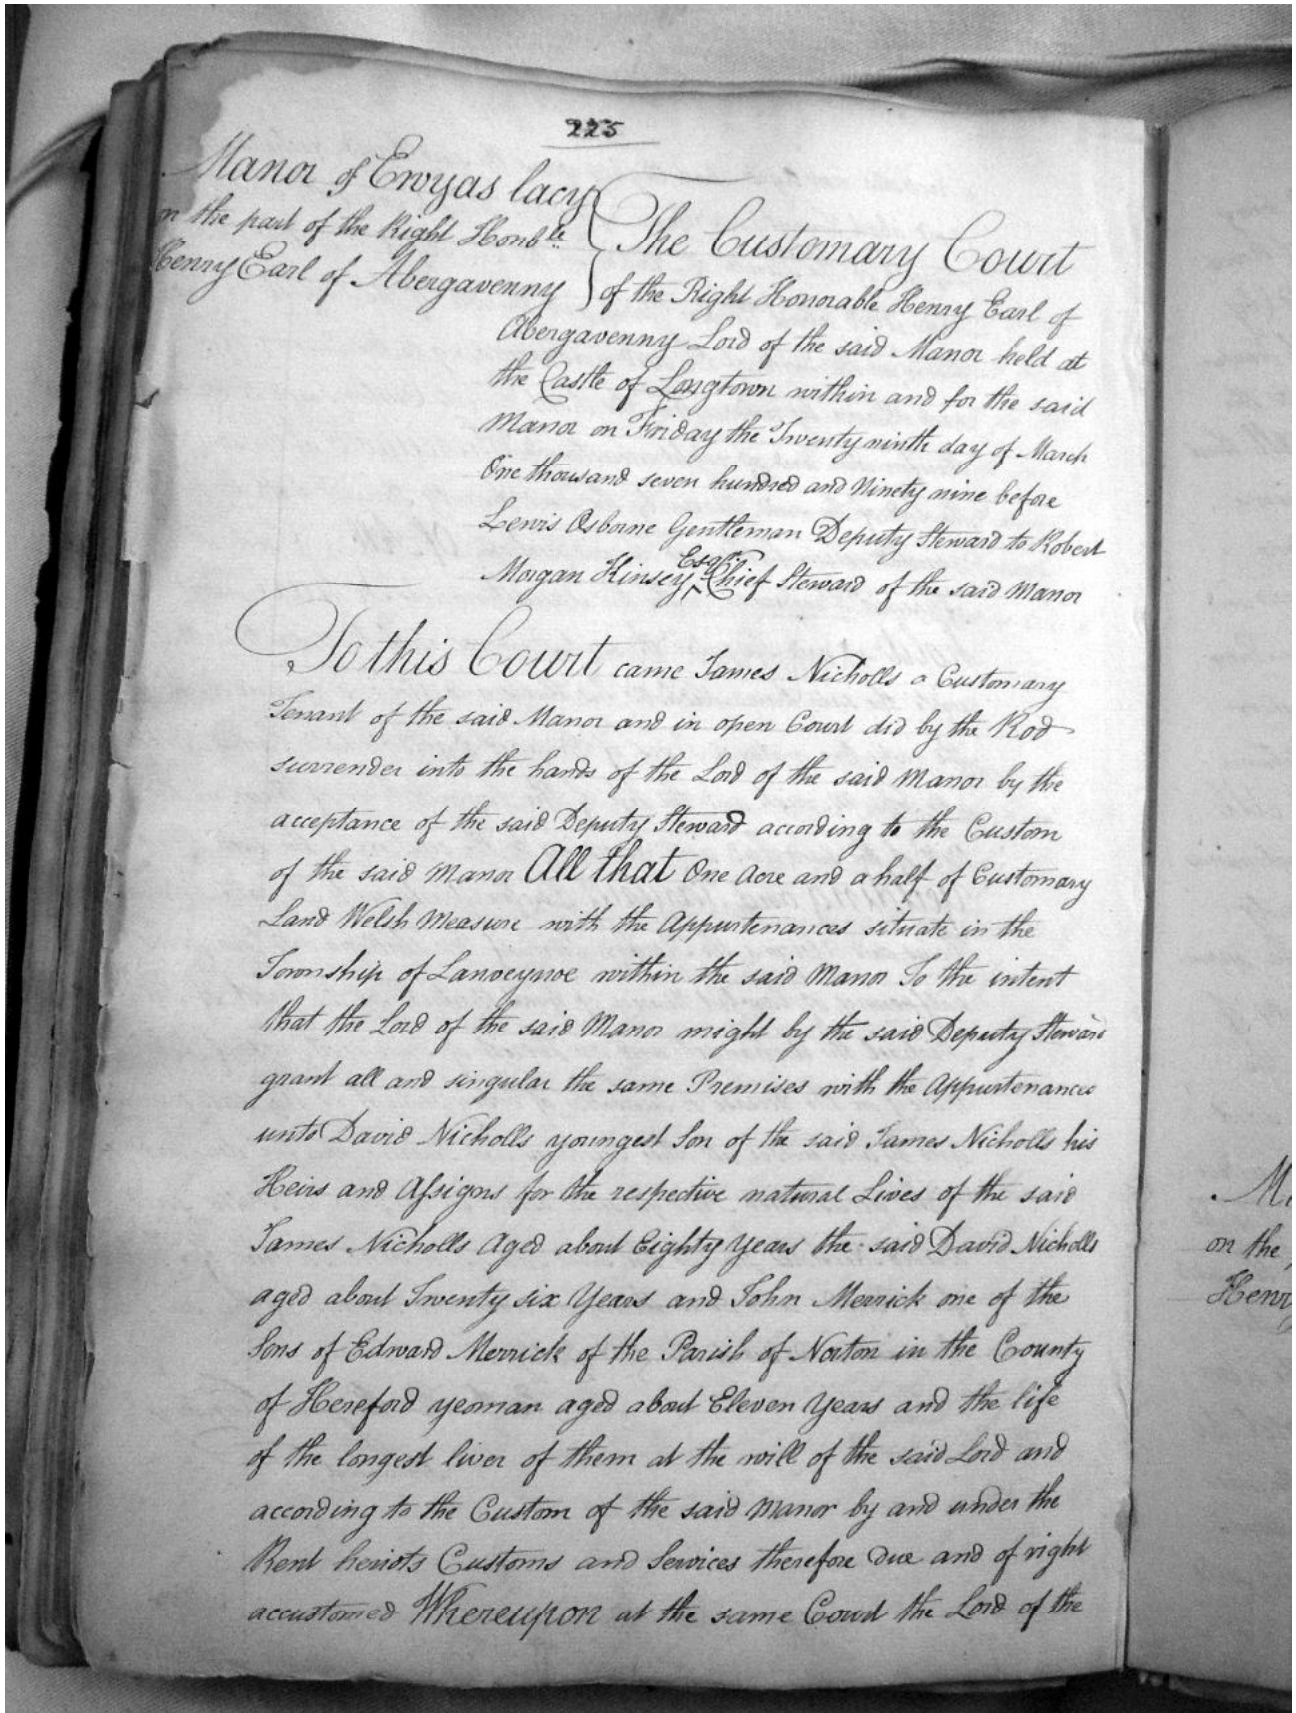 225
Manor of Ewyas lacy
on the part of the Right Honble
Henry Earl of Abergavenny
The Customary Court
of the Right Honorable Henry Earl of
Abergavenny Lord of the said Manor held at
the Castle of Longtown within and for the said
Manor on Friday the Twenty ninth day of March
One thousand seven hundred and Ninety nine before
Lewis Osborne Gentleman Deputy Steward to Robert
Morgan Kinsey Esqr. Chief Steward of the said Manor
To this Court came James Nicholls a Customary
Tenant of the said Manor and in open Court did by the Rod
surrender into the hands of the Lord of the said Manor by the
acceptance of the said Deputy Steward according to the Custom
of the said Manor All that One Acre and a half of Customary
Land Welsh Measure with the Appurtenances situate in the
Township of Lanveynoe within the said Manor To the intent
that the Lord of the said Manor might by the said Deputy Steward
grant all and singular the same Premises with the Appurtenances
unto David Nicholls youngest Son of the said James Nicholls his
Heirs and Assigns for the respective natural Lives of the said
James Nicholls Aged about Eighty Years the said David Nicholls
aged about Twenty six Years and John Merrick one of the
Sons of Edward Merrick of the Parish of Norton in the County
of Hereford yeoman aged about Eleven Years and the life
of the longest liver of them at the will of the said Lord and
according to the Custom of the said Manor by and under the
Rent heriots Customs and Services therefore Due and of right
accustomed Whereupon at the same Court the Lord of the
on the
Henry